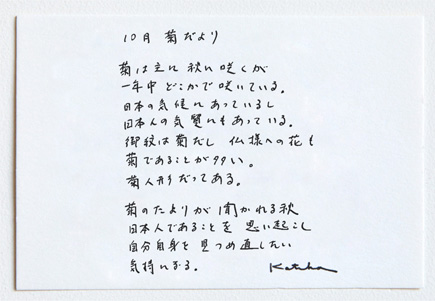 10月 菊だより
菊は主に秋に咲くが
一年中どこかで咲いている。
日本の気候にあっているし
日本人の気質にもあっている。
御紋は菊だし 仏様への花も
菊であることが多い。
菊人形だってある。
菊のたよりが聞かれる秋
日本人であることを思い起こし
自分自身を見つめ直したい
気持になる。